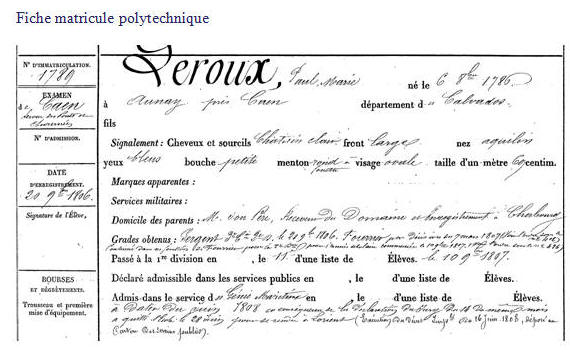 Fiche matricule polytechnique
N° D'IMMATRICULATION.
1789
EXAMEN
de Caen
N° D'ADMISSION.
DATE
D'ENREGISTREMENT.
20 9bre 1806.
Signature de l'Élève,
BOURSES
ET RÉGIMENTS.
Trousseau et première
mise d'équipement.
Leroux, Paul Marie né le 6 1786
à Aunay près Caen département d Calvados
fils
Signalement : Cheveux et sourcils Châtain clair front large nez aquilin
yeux bleus bouche petite menton rond visage ovale taille d'un mètre 69 centim.
Marques apparentes :
Services militaires :
Domicile des parents : M. son Père, Receveur du Domaine et Enregistrement à Cherbourg
Grades obtenus : Sergent le 20 9bre 1806. Fourrier par décision du 7 mars 1807
Passé à la 1re division en , le 11e d'une liste de Élèves. le 10 9bre 1807.
Déclaré admissible dans les services publics en , le d'une liste de Élèves.
Admis dans le service d Génie Maritime en , le d'une liste de Élèves.
à dater du 1808 en conséquence de la déclaration du Jury du 18 du même mois
a quitté l'école le 20 pour se rendre à Lorient